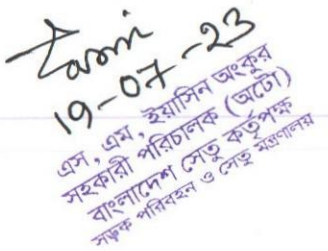 19-07-23
এস, এম, ইয়াসিন অংকুর
সহকারী পরিচালক (অটো)
বাংলাদেশ সেতু কর্তৃপক্ষ
সড়ক পরিবহন ও সেতু মন্ত্রণালয়